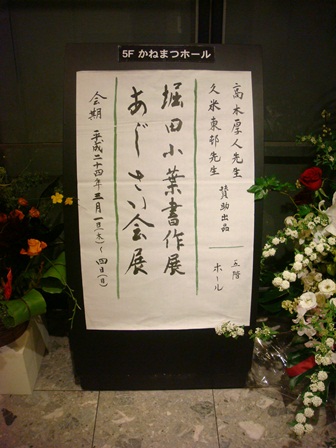 5F かねまつホール
高木厚人先生
久米東邨先生
賛助出品
五階
ホール
堀田小葉書作展
あじさい会展
会期 平成二十四年三月一日(木)〜四日(日)